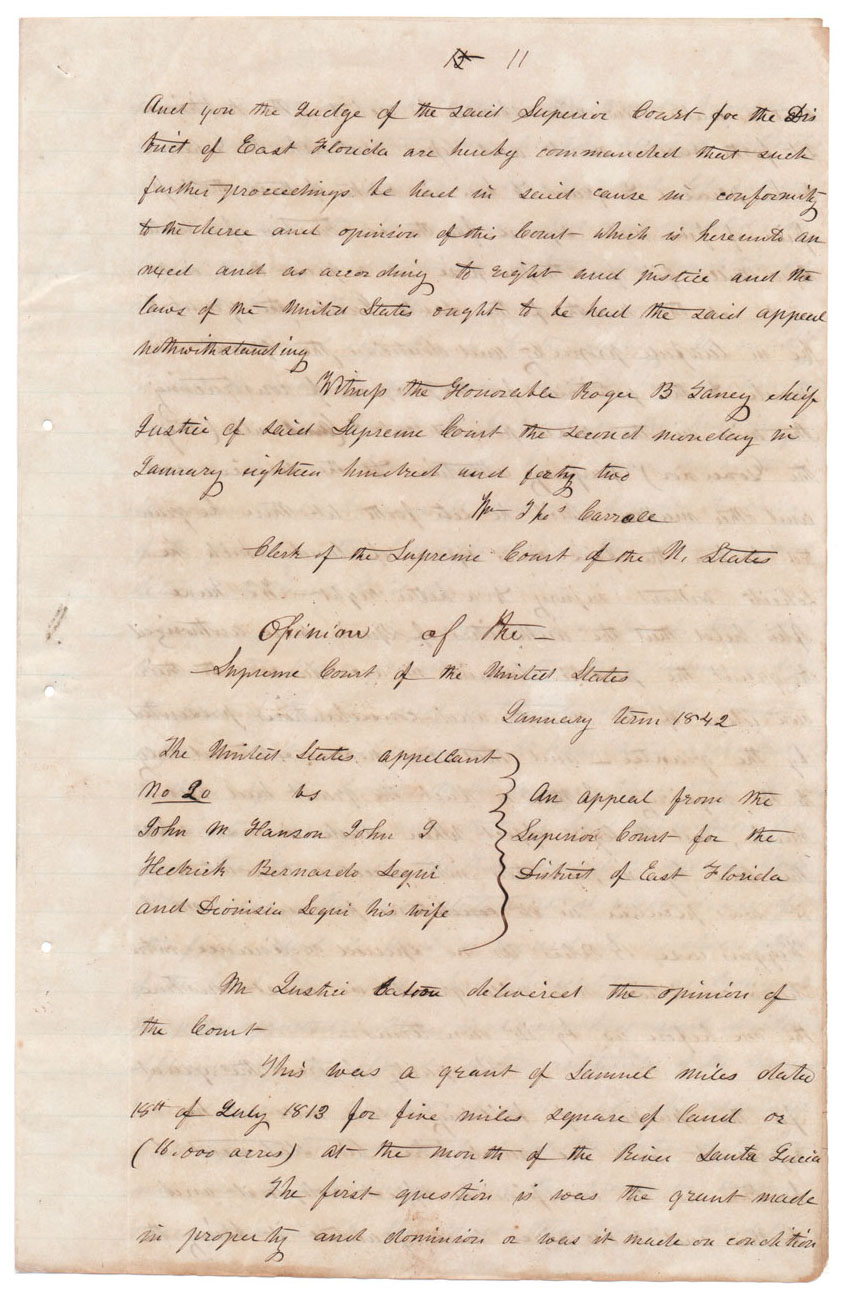 11
And you the Judge of the said Superior Court for the Dis
trict of East Florida are hereby commanded that such
further proceedings be had in said cause in conformity
to the decree and opinion of this Court which is hereunto an
nexed and as according to right and justice and the
laws of the United States ought to be had the said appeal
nothwithstanding
Witness the Honorable Roger B Taney cheif
Justice of said Supreme Court the second monday in
January eighteen hundred and forty two
Wm Thos Carroll
Clerk of the Supreme Court of the U, States
Opinion of the -
Supreme Court of the United States
January term 1842
The United States appellant
No 20 vs
John M Hanson John T
Hedrick Bernardo Segui
and Dionisia Segui his wife
An appeal from the
Superior Court for the
District of East Florida
Mr Justice Catron delivered the opinion of
the Court
This was a grant of Samuel miles date
18th of July 1813 for five miles square of land or
(16.000 acres) at the mouth of the River Santa Lucia
The first question is was the grant made
in property and dominion or was it made on condition